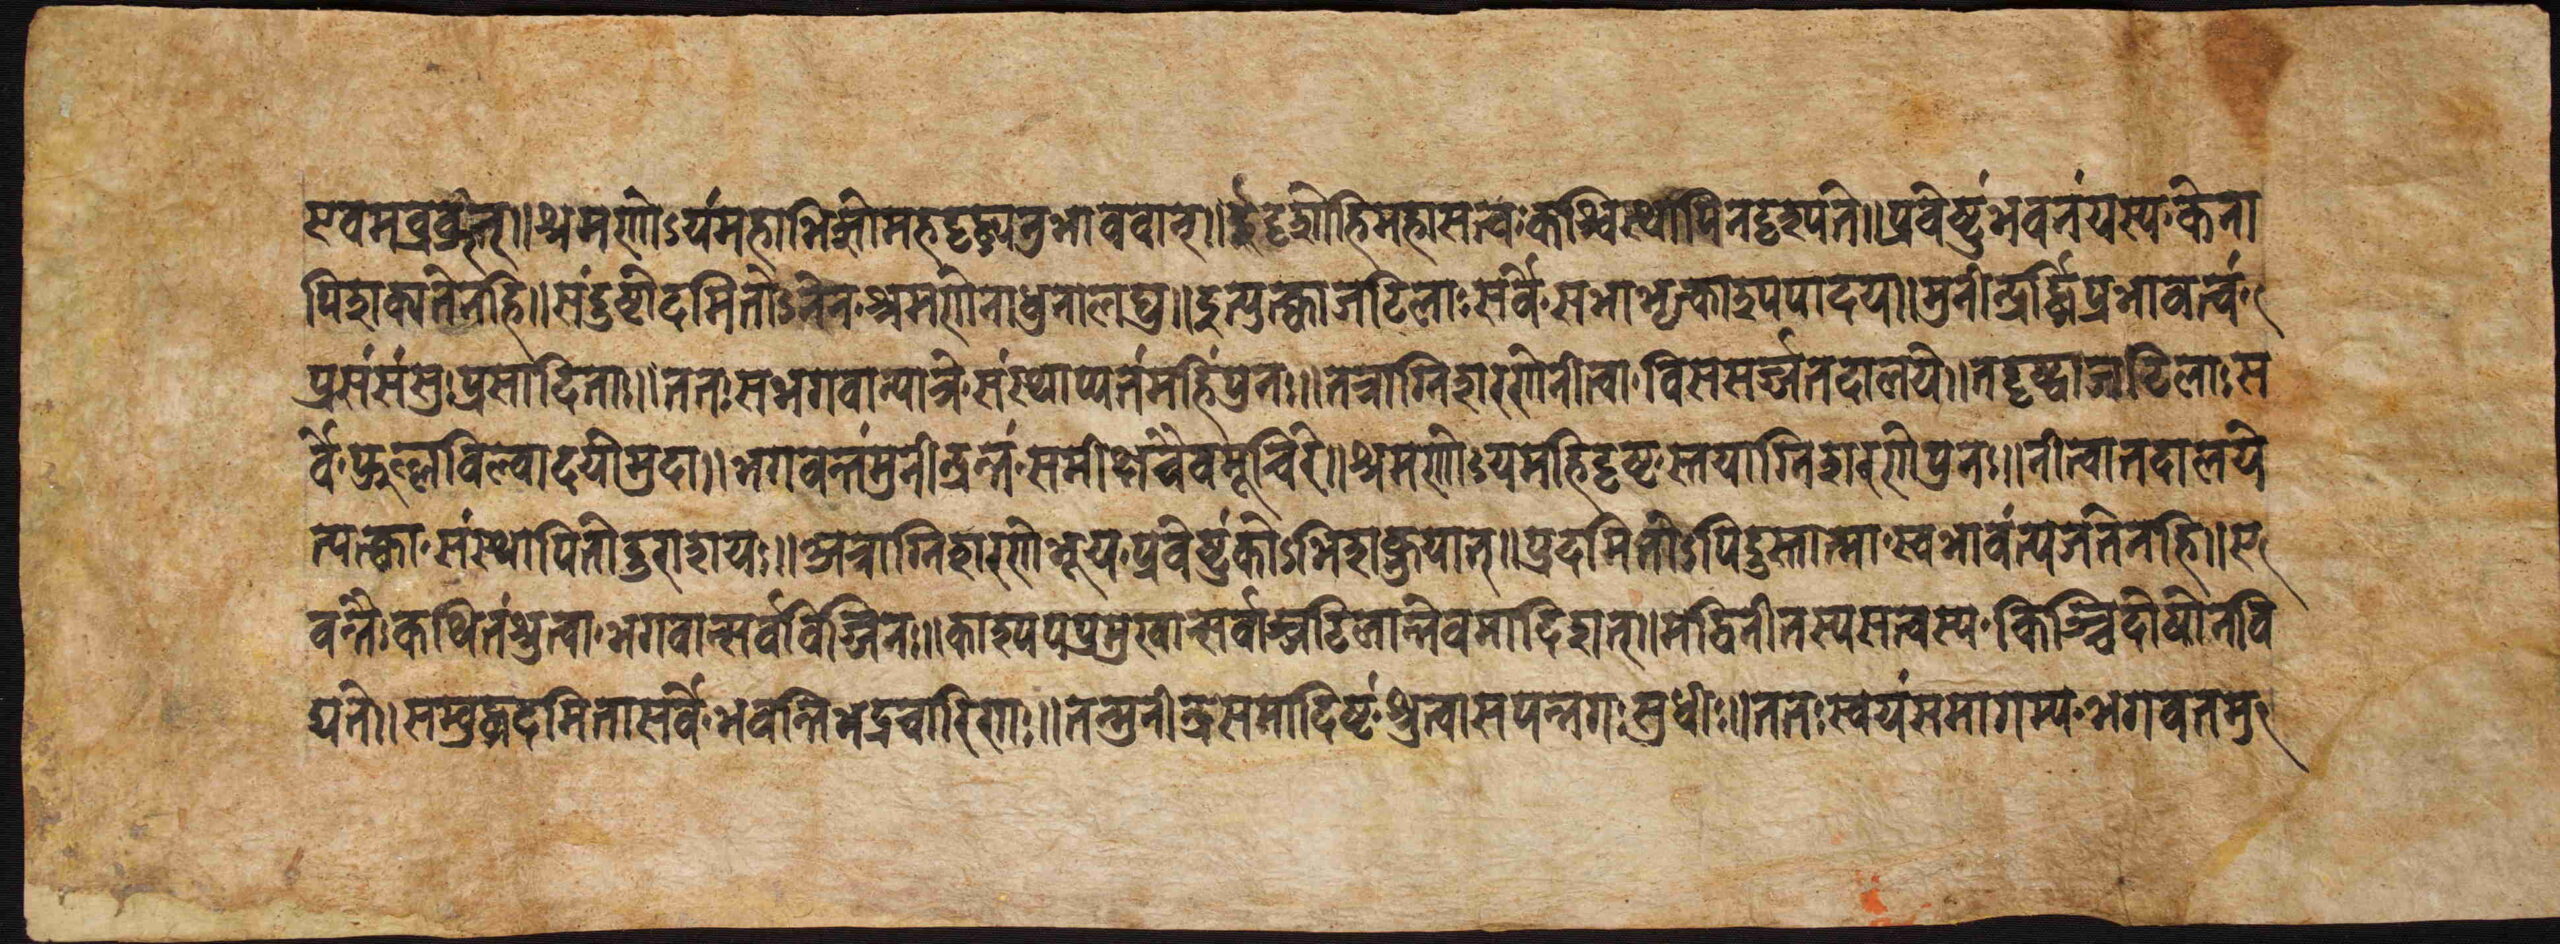 एवमव्रवृवन्॥श्रमणोऽयंमहाभिज्ञोमहदृद्ध्यनुभाववान्॥ईदृशोहिमहासत्वःकश्चित्स्थापिनदृश्यते॥प्रवेष्टुंभवनंयस्य॰केना
पिशक्यतेनहि॥संदुष्टोदमितोऽनेन॰श्रमणेनाधुनालघु॥इत्युक्त्वाजटिलाःसर्वे॰सभाभृत्काश्यपादय॥मुनीन्द्रर्द्धिप्रभावत्वं॰
प्रसंसंसुःप्रसादिताः॥ततःसभगवान्पात्रे॰संस्थाप्यतंमहिंपुनः॥तत्राग्निशरणेनीत्वा॰विससर्ज्जतदालये॥तदृष्ट्वाजटिलाःस
र्वे॰फुल्लविल्वादयोमुदा॥भगवन्तंमुनीन्द्रन्तं॰समीक्ष्यैवमूचिरे॥श्रमणोऽयमहिदृष्ट॰स्तयाग्निशरणेपुनः॥नीत्वातदालये
त्यक्त्वा॰संस्थापितोदुराशयः॥अत्राग्निशरणेभूय॰प्रवेष्टुंकोऽभिशक्नुयात्॥प्रदमितोऽपिदुस्तात्मा॰स्वभावंत्यजतेनहि॥ए
वन्तैःकथितंश्रुत्वा॰भगवान्सर्वविज्जिनः॥काश्यपप्रमुखान्सर्वाञ्जटिलान्तेवमादिशत्॥मद्विनीतस्यसत्वस्य॰किञ्चिद्दोषोनवि
द्यते॥सम्बुद्धदमितासर्वे॰भवन्तिभद्रचारिणः॥तन्मुनीन्द्रसमादिष्टं॰श्रुत्वासपन्नगःसुधीः॥ततःस्वयंसमागम्य॰भगवतमु